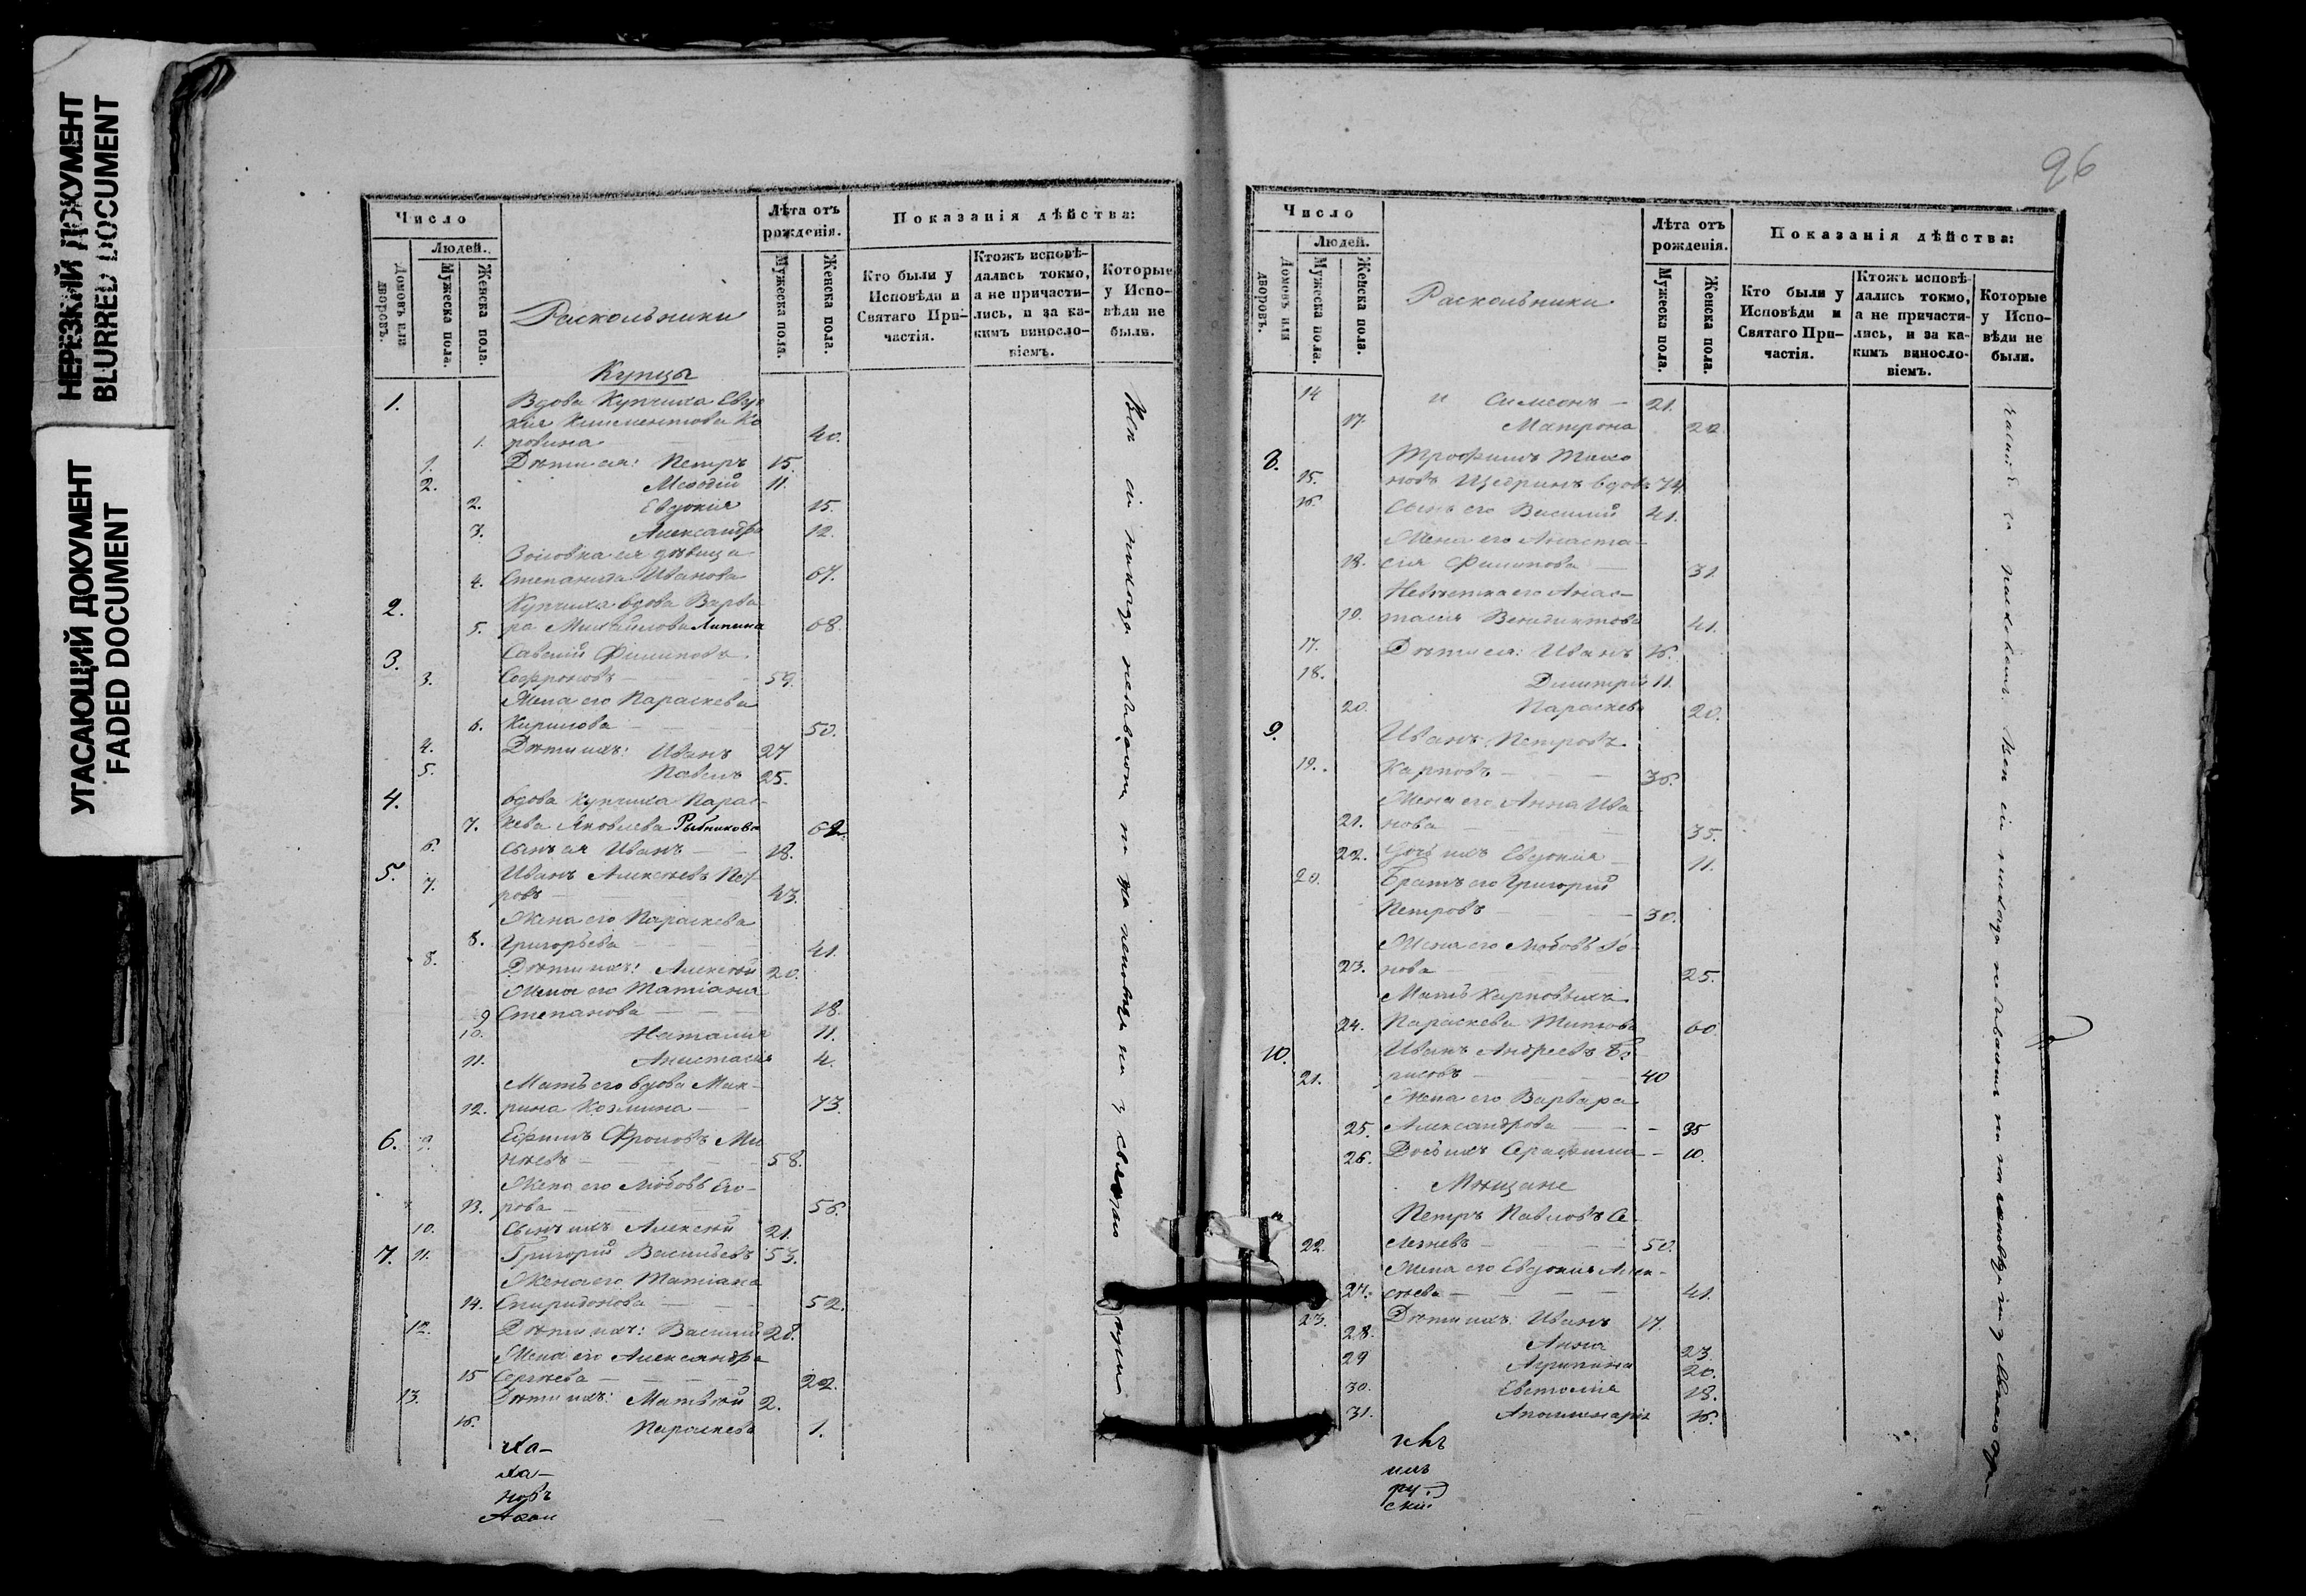 НЕРЕЗКИЙ ДОКУМЕНТ
BLURRED DOCUMENT
УГАСАЮЩИЙ ДОКУМЕНТ
FADED DOCUMENT
Число
Людей.
Домовъ или дворовъ.
Мужеска пола.
Женска пола.
Раскольники
Лѣта отъ рожденія.
Мужеска пола.
Женска пола.
Показанія дѣйства:
Кто были у Исповѣди и Святаго Причастія.
Ктожъ исповѣдались токмо, а не причастились, и за какимъ винословіемъ.
Которые у Исповѣди не были.
Купцы
1. Вдова Купчиха Евдо
кія Климентова Ко
1. ровина 40.
1. Дѣти ея: Петръ 15.
2. Меѳодій 11.
2. Евдокія 15.
3. Александра 12.
Золовка ея дѣвица
4. Степанида Иванова 67.
2. Купчиха вдова Варва
5. ра Михайлова Липина 68.
3. Савелій Филиповъ
3. Софроновъ 59.
Жена его Параскева
6. Кирилова 50.
4. Дѣти ихъ: Иванъ 27
5. Павелъ 25.
4. вдова купчиха Парас-
7. кева Яковлева Рыбникова 62.
6. Сынъ ея Иванъ 18.
5. 7. Иванъ Алексѣевъ Пет
ровъ 43.
Жена его Параскева
8. Григорьева 41.
8. Дѣти ихъ: Алексѣй 20.
Жена его Татіана
9 Степанова 18.
10. Наталія 11.
11. Анастасія 4.
Мать его вдова Мак-
12. рина Козмина 73.
6. 9. Ефимъ Фроловъ Ми
нѣевъ 58.
Жена его Любовь Его-
13. рова 56.
10. Сынъ ихъ Алексѣй 21.
7. 11. Григорій Васильевъ 53.
Жена его Татіана
14. Спиридонова 52.
12. Дѣти ихъ: Василій 28.
Жена его Александра
15 Сергѣева 22.
13. Дѣти ихъ: Матвѣй 2.
16. Параскева 1.
96
Число
Людей.
Домовъ или дворовъ.
Мужеска пола.
Женска пола.
Раскольники
Лѣта отъ рожденія.
Мужеска пола.
Женска пола.
Показанія дѣйства:
Кто были у Исповѣди и Святаго Причастія.
Ктожъ исповѣдались токмо, а не причастились, и за какимъ винословіемъ.
Которые у Исповѣди не были.
14 и Симеонъ 21.
17. Матрона 22
8. Трофимъ Тихо
15. новъ Щедринъ вдовъ 74.
16. Сынъ его Василий 41.
Жена его Анаста-
18. сія Филипова 31.
Невѣстка его Анас-
19. тасія Венидиктова 41.
17. Дѣти ея: Иванъ 16.
18. Димитрій 11.
20. Параскева 20.
9. Иванъ Петровъ
19. Карповъ 36.
Жена его Анна Ива
21. нова 35.
22. Дочь ихъ Евдокія 11.
20. Братъ его Григорий
Петровъ 30.
Жена его Любовь
23. нова 25.
Мать Карповыхъ
24. Параскева 60
10. Иванъ Андреевъ Бо
21. рисовъ 40
Жена его Варвара
25. Александрова 35
26. Дочь ихъ Серафима 10.
Мѣщане
Петръ Павловъ Се
22. лезневъ 50.
Жена его Евдокія Алек-
27. сѣева 41.
23. Дѣти ихъ: Иванъ 17.
28. Анна 23.
29 Агрипина 20.
30. Евстолія 18.
31. Аполинарія 16.